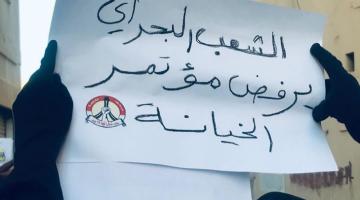 الشعب البحراني
يرفض مؤتمر
الخيانة